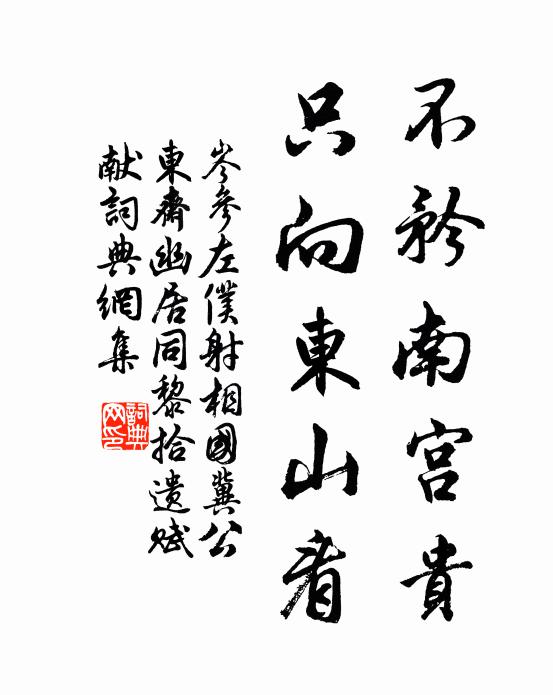 不矜南宮貴
只向東山看
岑參左僕射相國冀公
東齋幽居同黎拾遺賦
献詞典網集
詞典网印